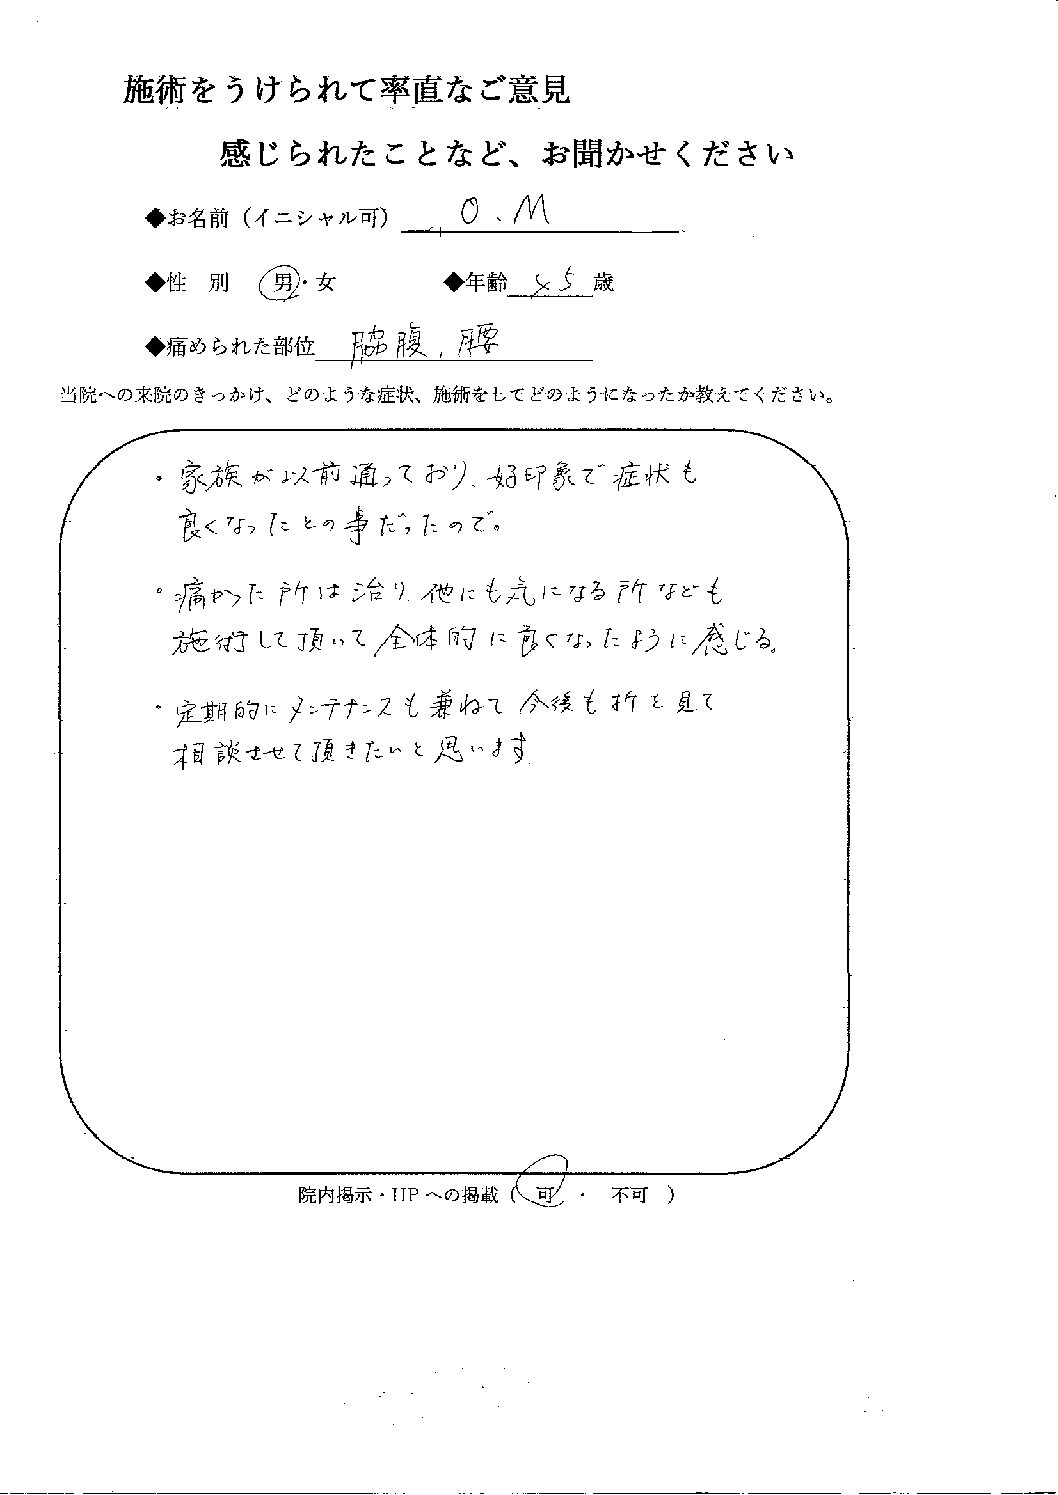 施術をうけられて率直なご意見
感じられたことなど、お聞かせください
◆お名前（イニシャル可） O.M
◆性 別 男・女 ◆年齢 45 歳
◆痛められた部位 脇腹、腰
当院への来院のきっかけ、どのような症状、施術をしてどのようになったか教えてください。
・家族が以前通っており、好印象で症状も
良くなったとの事だったので。
・痛かった所は治り、他にも気になる所なども
施術して頂いて全体的に良くなったように感じる。
・定期的にメンテナンスも兼ねて今後も折を見て
相談させて頂きたいと思います
院内掲示・HPへの掲載（ 可 ・ 不可 ）